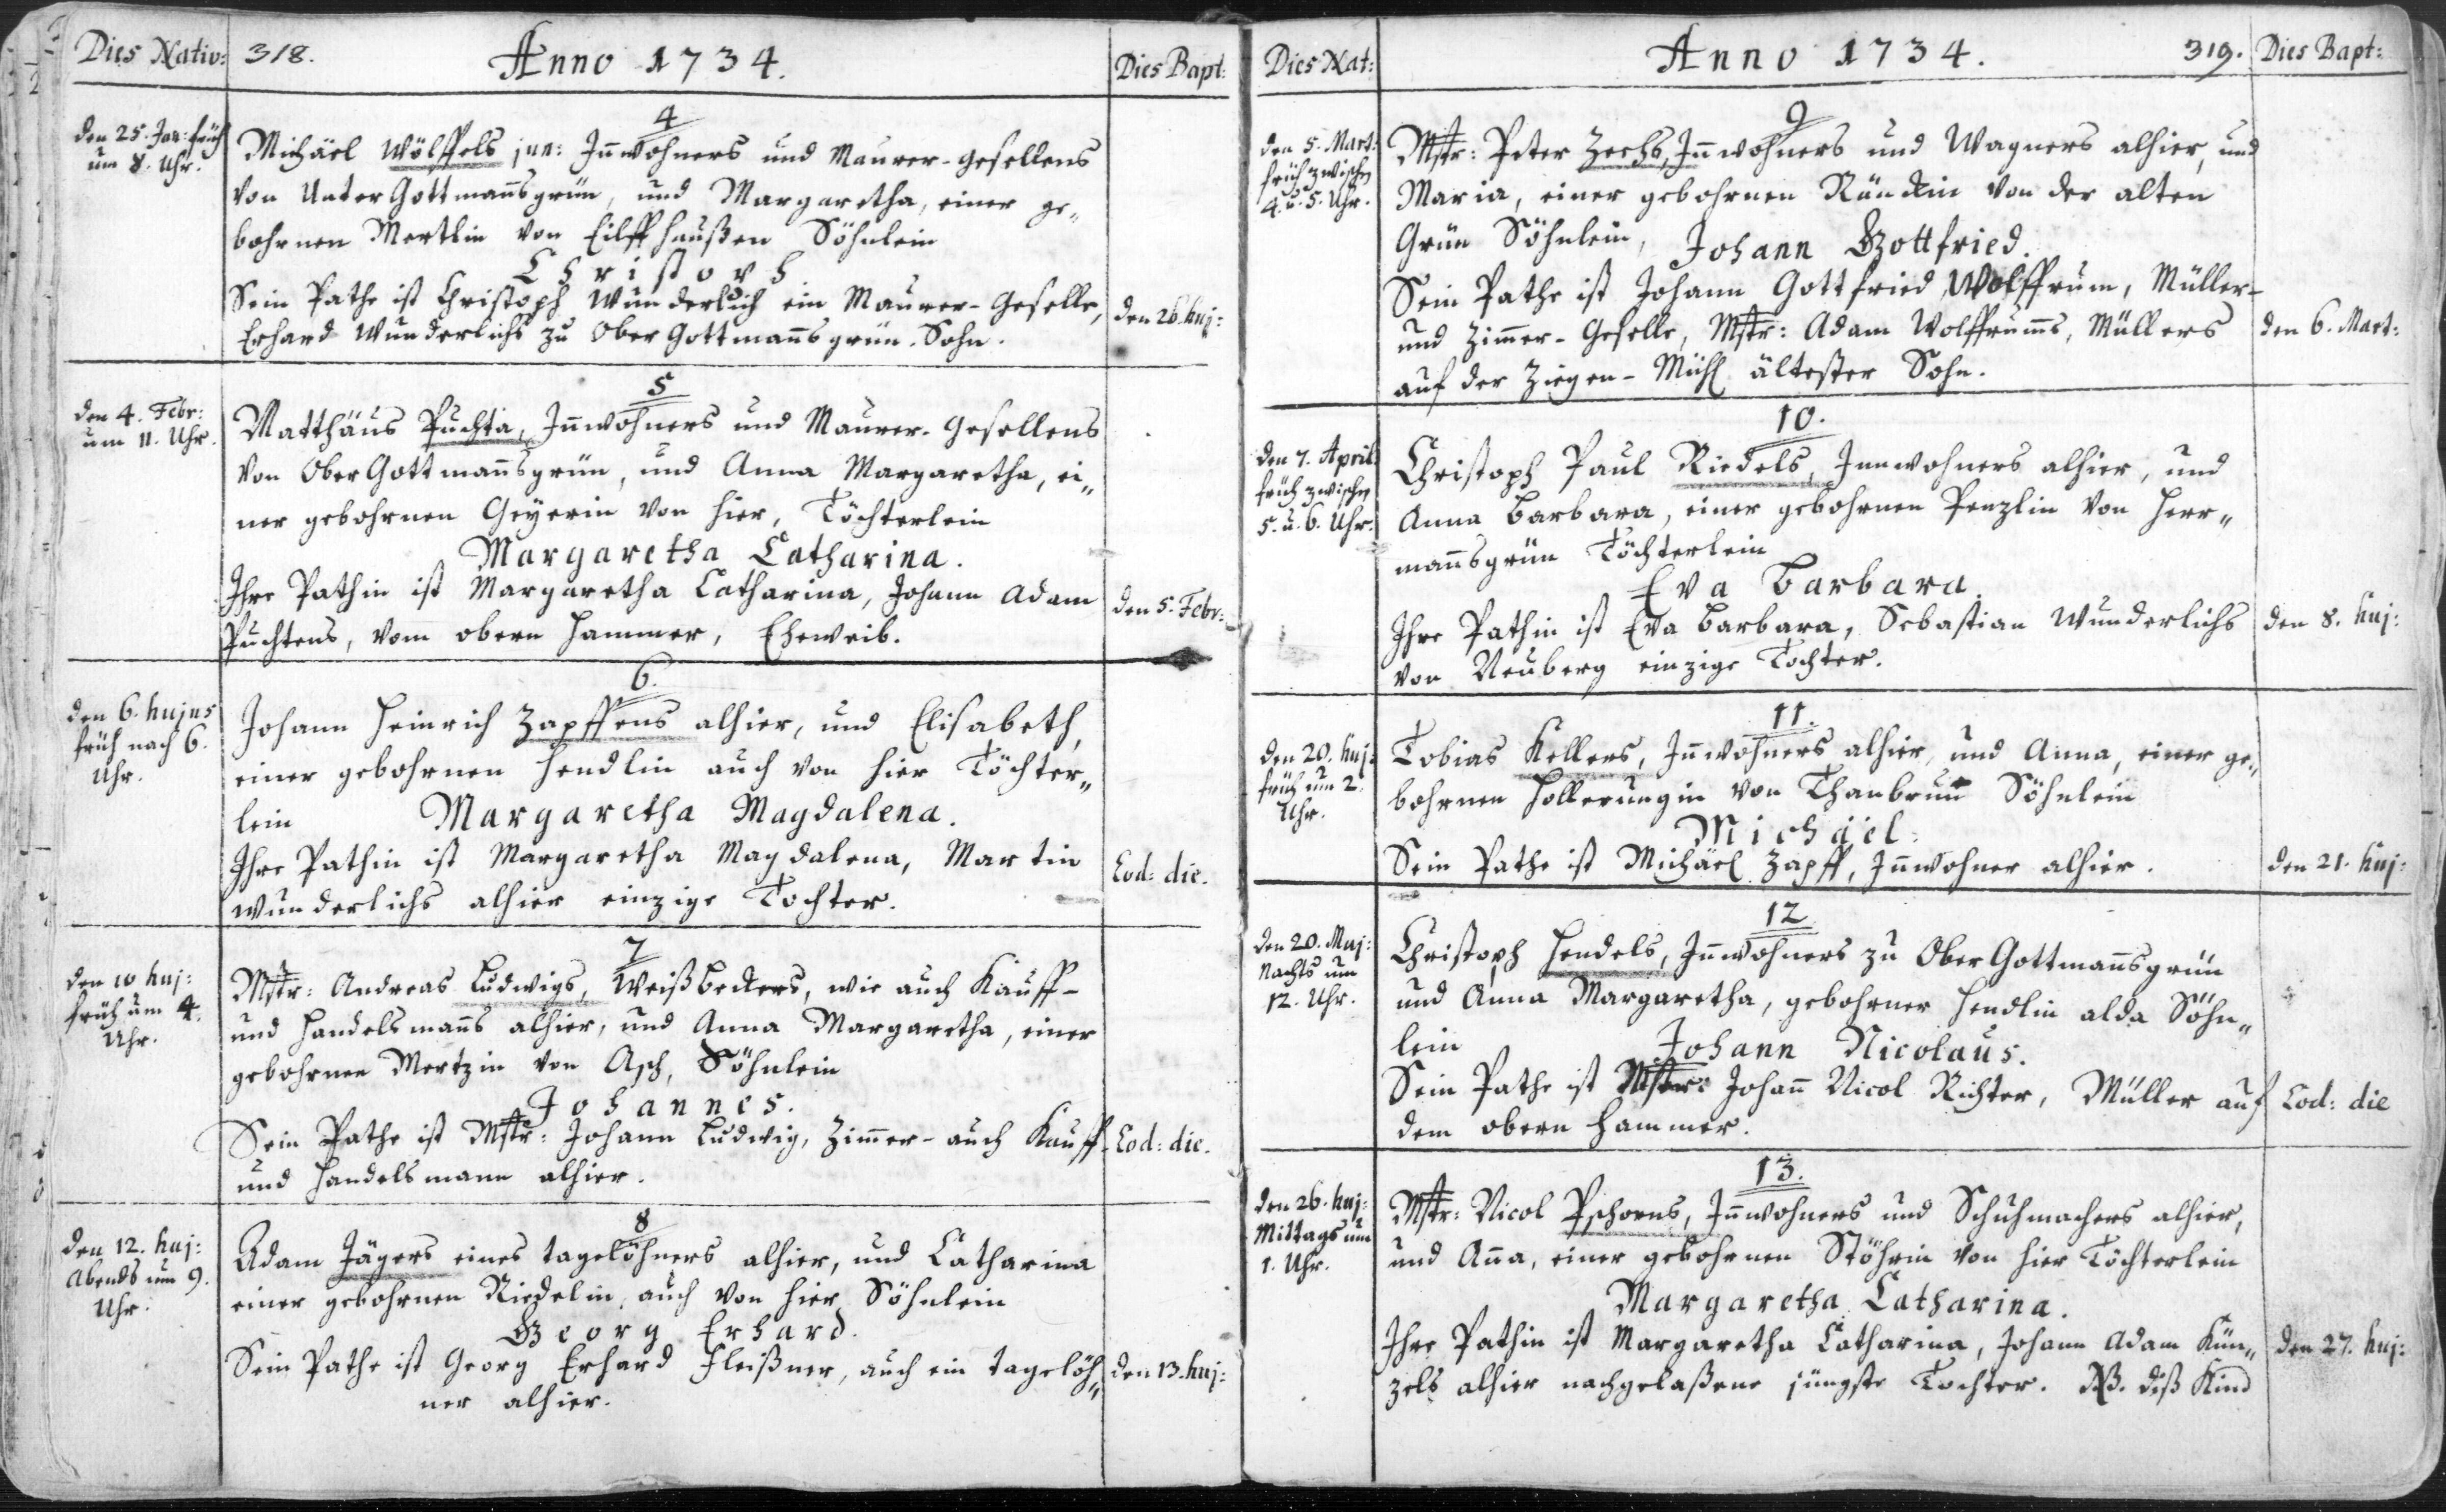 Dies Nativ: 318. Anno 1734. Dies Bapt:
4
den 25. Jan: früh
um 8. Uhr.
Michäel Wölffels jun: Jnnwohners und Maurer-Gesellens
von Unter Gottmannsgrün, und Margaretha, einer ge„
bohrnen Mertlin von Eilffhaußen Söhnlein
Christoph
Sein Pathe ist Christoph Wunderlich ein Maurer-Geselle,
Erhard Wunderlichs zu Ober Gottmannsgrün. Sohn.
den 26. huj:
5
den 4. Febr:
um 11. Uhr.
Matthäus Puchta, Jnnwohners und Maurer-Gesellens
von Ober Gottmannsgrün, und Anna Margaretha, ei„
ner gebohrnen Geyerin von hier, Töchterlein
Margaretha Catharina.
Ihre Pathin ist Margaretha Catharina, Johann Adam
Puchtens, vom obern Hammer, Eheweib.
den 5. Febr:
6.
den 6. hujus
früh nach 6.
Uhr.
Johann Heinrich Zapffens alhier, und Elisabeth,
einer gebohrnen Hendlin auch von hier Töchter„
lein Margaretha Magdalena.
Ihre Pathin ist Margaretha Magdalena, Martin
Wunderlichs alhier einzige Tochter.
Eod: die.
7
den 10 huj:
früh um 4.
Uhr.
Mstr: Andreas Ludwigs, Weißbeckers, wie auch Kauff-
und Handelsmanns alhier, und Anna Margaretha, einer
gebohrnen Mertzin von Asch, Söhnlein
Johannes.
Sein Pathe ist Mstr: Johann Ludwig, Zimmer- auch Kauff-
und Handelsmann alhier.
Eod: die.
8
den 12. huj:
Abends um 9.
Uhr.
Adam Jägers eines tagelöhners alhier, und Catharina
einer gebohrnen Riedelin, auch von hier Söhnlein
Georg Erhard.
Sein Pathe ist Georg Erhard Fleißner, auch ein tagelöh„
ner alhier.
den 13. huj:
Dies Nat: Anno 1734. 319. Dies Bapt:
9
den 5. Mart:
früh zwischen
4. u. 5. Uhr.
Mstr: Peter Zechs, Jnnwohners und Wagners alhier, und
Maria, einer gebohrnen Künklin von der alten
Grün Söhnlein, Johann Gottfried.
Sein Pathe ist Johann Gottfried Wolffrum, Müller-
und Zimmer-Geselle, Mstr: Adam Wolffrumms, Müllers
auf der Ziegen-Mühl ältester Sohn.
den 6. Mart:
10.
den 7. April.
früh zwischen
5. u. 6. Uhr.
Christoph Paul Riedels, Jnnwohners alhier, und
Anna Barbara, einer gebohrnen Penzlin von Herr„
mannsgrün Töchterlein
Eva Barbara.
Ihre Pathin ist Eva Barbara, Sebastian Wunderlichs
von Neuberg einzige Tochter.
den 8. huj:
11.
den 20. huj:
früh um 2.
Uhr.
Tobias Kellers, Jnnwohners alhier, und Anna, einer ge„
bohrnen Hollerungin von Thanbrun Söhnlein
Michäel.
Sein Pathe ist Michäel Zapff, Jnnwohner alhier.
den 21. huj:
12
den 20. Maj:
Nachts um
12. Uhr.
Christoph Hendels, Jnnwohners zu Ober Gottmannsgrün
und Anna Margaretha, gebohrner Hendlin alda Söhn„
lein Johann Nicolaus.
Sein Pathe ist Mstr: Johann Nicol Richter, Müller auf
dem obern Hammer.
Eod: die
13.
den 26. huj:
Mittags um
1. Uhr.
Mstr: Nicol Pschorns, Jnnwohners und Schuhmachers alhier,
und Anna, einer gebohrnen Stöhrin von hier Töchterlein
Margaretha Catharina.
Ihre Pathin ist Margaretha Catharina, Johann Adam Kün„
zels alhier nachgelaßene jüngste Tochter. NB. diß Kind
den 27. huj: